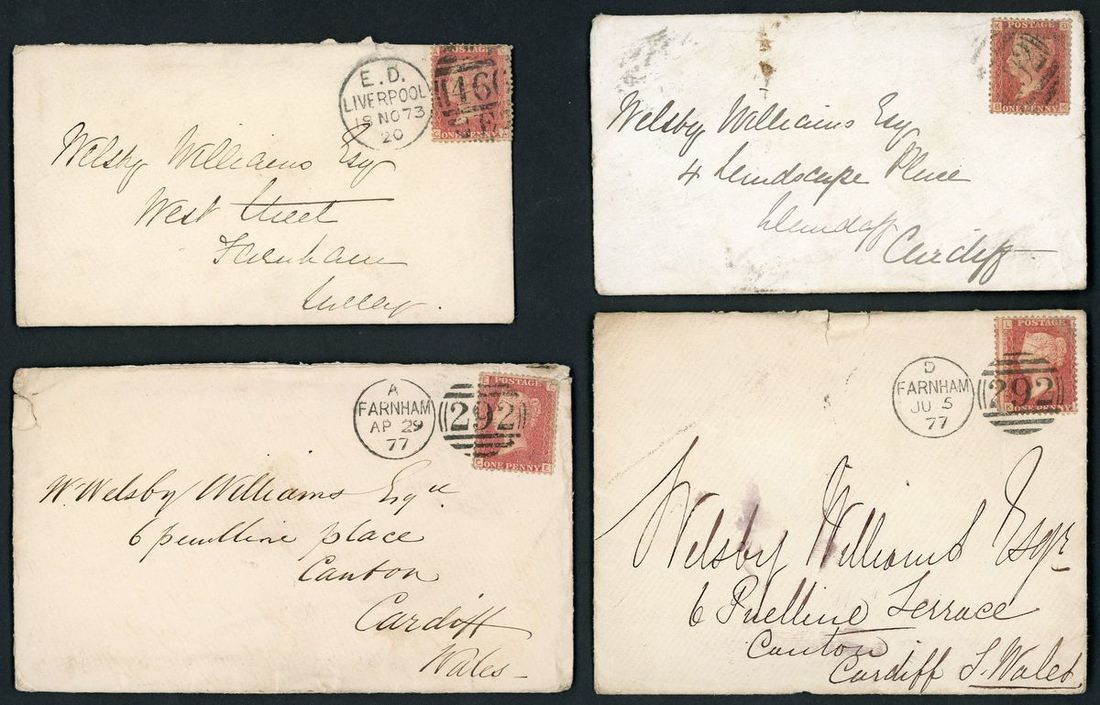 E.D.
LIVERPOOL
18 NO 73
20
POSTAGE
46
ONE PENNY
Welsby Williams Esq
West Street
Farnham
Surrey.
ONE PENNY
Welsby Williams Esq
4 Landscape Place
Llandaff
Cardiff
A
FARNHAM
AP 29
77
292
POSTAGE
ONE PENNY
W. Welsby Williams Esqre
6 penlline place
Canton
Cardiff
Wales
D
FARNHAM
JU 5
77
292
POSTAGE
ONE PENNY
Welsby Williams Esqr
6 Pnelline Terrace
Canton
Cardiff S. Wales